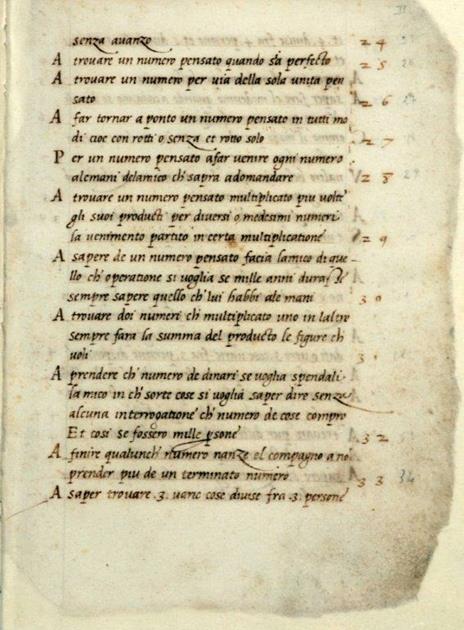 senza auanzo 24
A trouare un numero pensato quando sia perfecto 25
A trouare un numero per uia della sola unita pen
sato 26
A far tornar a ponto un numero pensato in tutti mo
di cioe con rotti o senza et rotto solo 27
Per un numero pensato afar uenire ogni numero
alemani delamico ch sapra adomandare 28
A trouare un numero pensato multiplicato piu uolte
gli suoi producti per diuersi o medesimi numeri
la uenimento partito in certa multiplicatione 29
A sapere de un numero pensato facia lamico di que
llo ch operatione si uoglia se mille anni durasse
sempre sapere quello ch lui habbi ale mani 30
A trouare doi numeri ch multiplicato uno in laltro
sempre fara la summa del producto le figure ch
uoli 31
A prendere ch numero de dinari se uoglia spendali
la mico in ch sorte cose si uoglia saper dire senza
alcuna interrogatione ch numero de cose compro
Et cosi se fossero mille psone 32
A finire qualunch numero nanze el compagno a no
prender piu de un terminato numero 33 34
A saper trouare .3. uarie cose diuise fra .3. persone